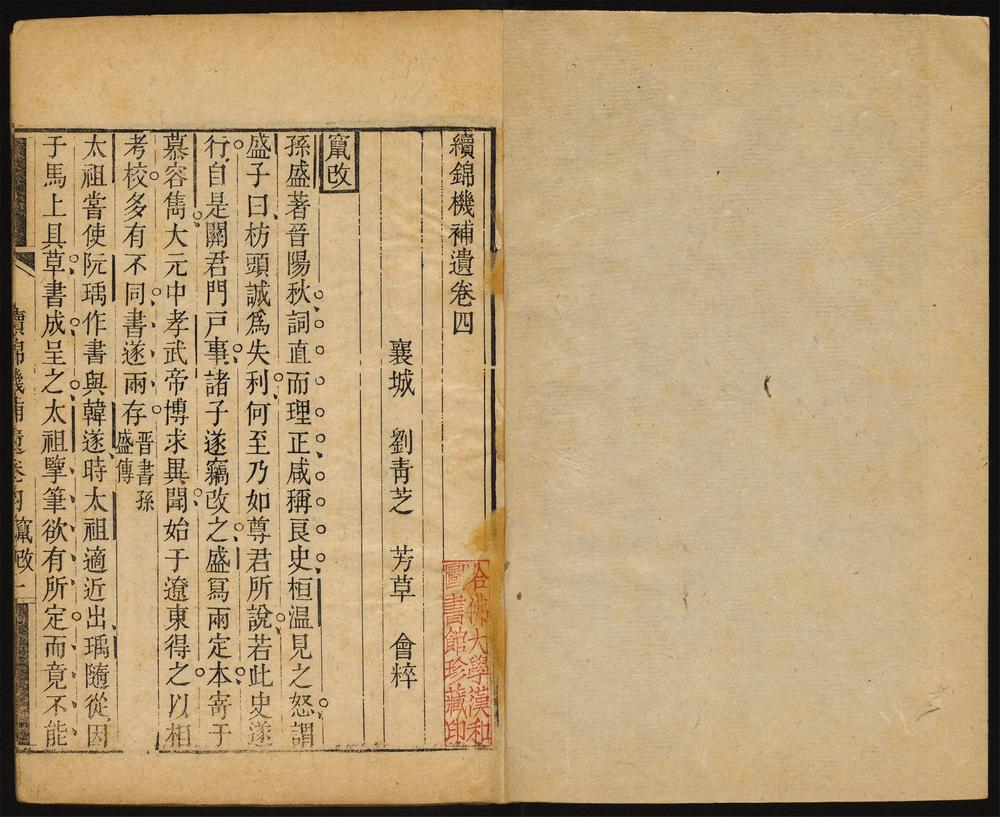 續錦機補遺卷四
襄城　劉青芝　芳草　會粹
竄改
孫盛著晉陽秋詞直而理正咸稱良史桓温見之怒謂
盛子曰枋頭誠爲失利何至乃如尊君所說若此史遂
行自是關君門戸事諸子遂竊改之盛寫兩定本寄于
慕容儁大元中孝武帝博求異聞始于遼東得之以相
考校多有不同書遂兩存晉書孫
盛傳
太祖嘗使阮瑀作書與韓遂時太祖適近出瑀隨從因
于馬上具草書成呈之太祖擥筆欲有所定而竟不能
續錦機補遺卷四 竄改 一
哈佛大學漢和
圖書館珍藏印